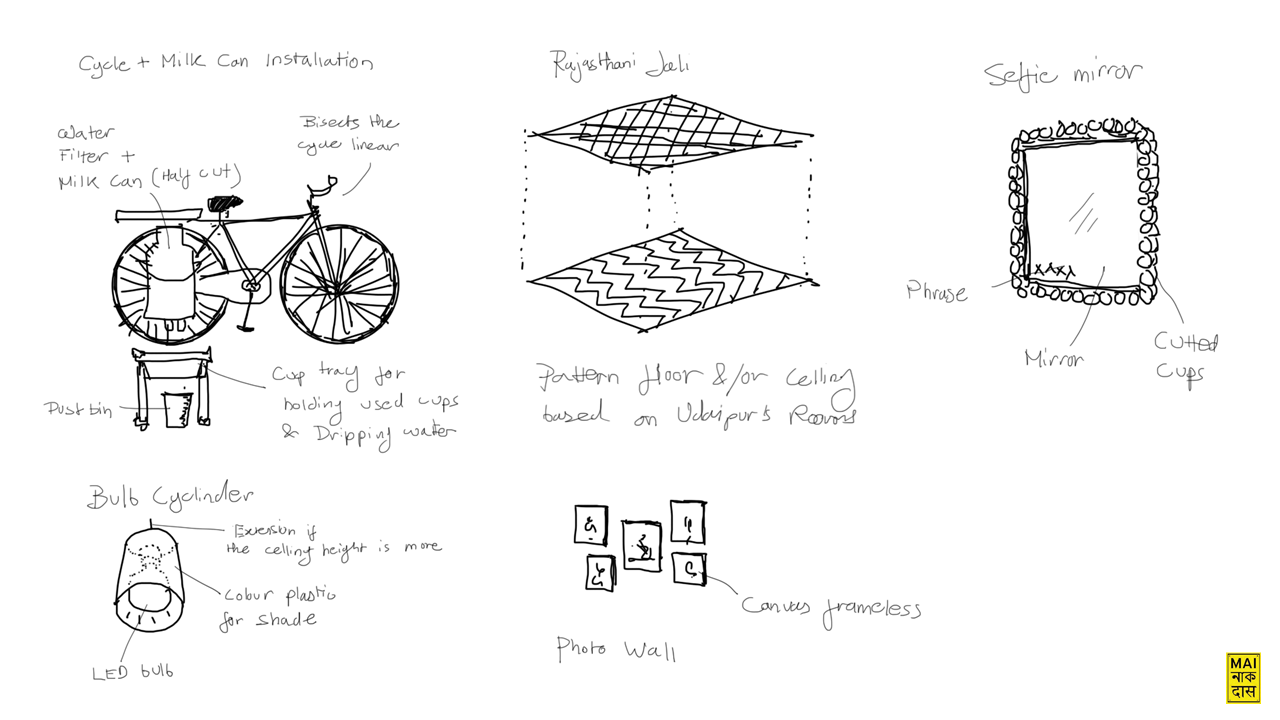 Cycle + Milk Can Installation
Water
Filter +
Milk Can (Half cut)
Bisects the
cycle linear
Cup tray for
holding used cups
& Dripping water
Dustbin
Rajasthani Jali
Pattern floor &/or Celling
based on Udaipur's
Selfie mirror
Phrase
Mirror
Cutted
Cups
Bulb Cyclinder
Exension if
the celling height is more
Colour plastic
for shade
LED bulb
Canvas frameless
Photo Wall
MAI
নাক
দাস